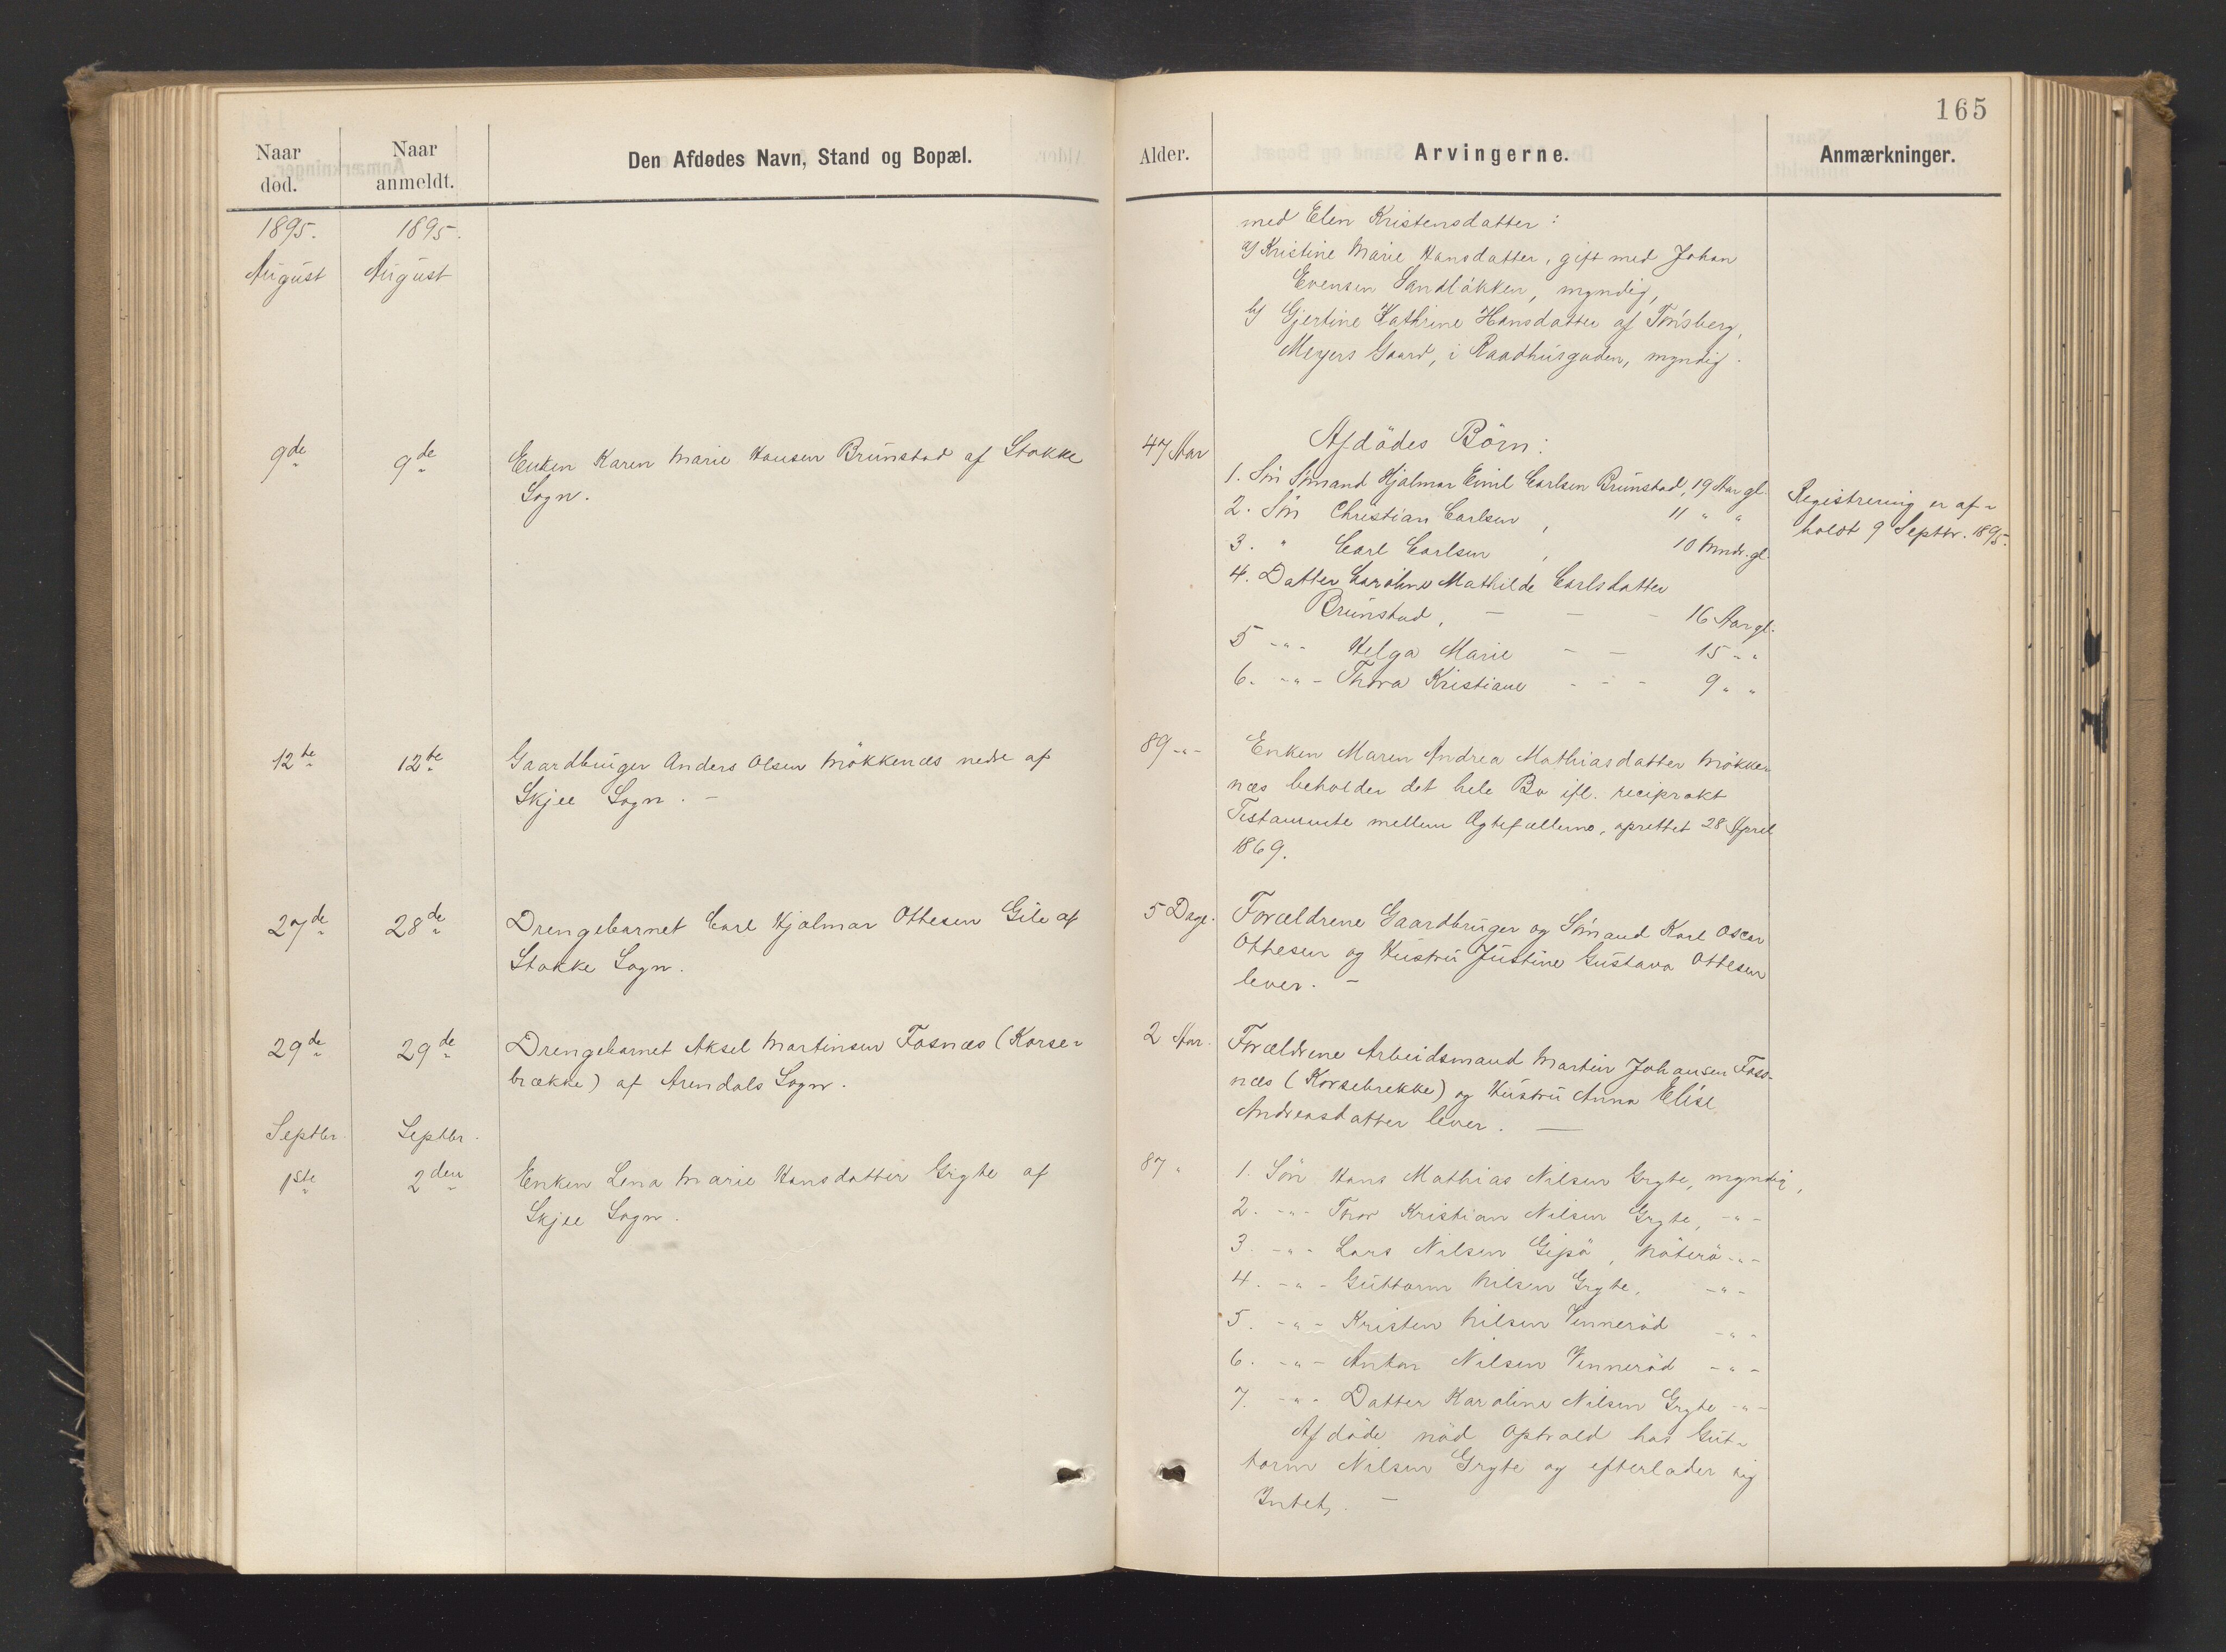 165
Naar død.
Naar anmeldt.
Den Afdødes Navn, Stand og Bopæl.
Alder.
Arvingerne.
Anmærkninger.
1895. 1895.
August August
med Elen Kristensdatter:
a) Kristine Marie Hansdatter, gift med Johan
Evensen Sandløkken, myndig,
b) Gjertine Kathrine Hansdatter af Tønsberg,
Meyers Gaard, i Raadhusgaden, myndig.
9de 9de Enken Karen Marie Hansen Brunstad af Stokke
Sogn.
47 Aar
Afdødes Börn:
1. Sön Sömand Hjalmar Emil Carlsen Brunstad, 19 Aar gl.
2. Sön Christian Carlsen, 11 " "
3. " Carl Carlsen, 10 Mndr. gl.
4. Datter Caroline Mathilde Carlsdatter
Brunstad, - - - 16 Aar gl.
5 -"- Helga Marie - - 15 - "
6. -"- Thora Kristiane - - - 9 " "
Registrering er af-
holdt 9 Septbr. 1895.
12te 12te Gaardbruger Anders Olsen Mökkenæs nedre af
Skjee Sogn. -
89 -"-
Enken Maren Andrea Mathiasdatter Mökke-
næs beholder det hele Bo ifl. reciprokt
Testamente mellem Ægtefællerne, oprettet 28 April
1869.
27de 28de Drengebarnet Carl Hjalmar Ottesen Gile af
Stokke Sogn.
5 Dage.
Forældrene Gaardbruger og Sömand Karl Oscar
Ottesen og Hustru Justine Gustava Ottesen
lever. -
29de 29de Drengebarnet Aksel Martinsen Fosnæs (Korse-
brække) af Arendals Sogn.
2 Aar.
Forældrene Arbeidsmand Martin Johansen Foss-
næs (Korsebrekke) og Hustru Anna Elise
Andreasdatter lever. -
Septbr. Septbr.
1ste 2den Enken Lena Marie Hansdatter Gryte af
Skjee Sogn.
87 "
1. Sön Hans Mathias Nilsen Gryte, myndig,
2. -"- Thor Kristian Nilsen Gryte, -"-
3. -"- Lars Nilsen Gipö, Nöterö -"-
4. -"- Guttorm Nilsen Gryte, -"-
5. -"- Kristen Nilsen Venneröd -"-
6. -"- Anton Nilsen Venneröd -"-
7. -"- Datter Karoline Nilsen Gryte -"-
Afdöde nöd Ophold hos Gut-
torm Nilsen Gryte og efterlader sig
Intet. -